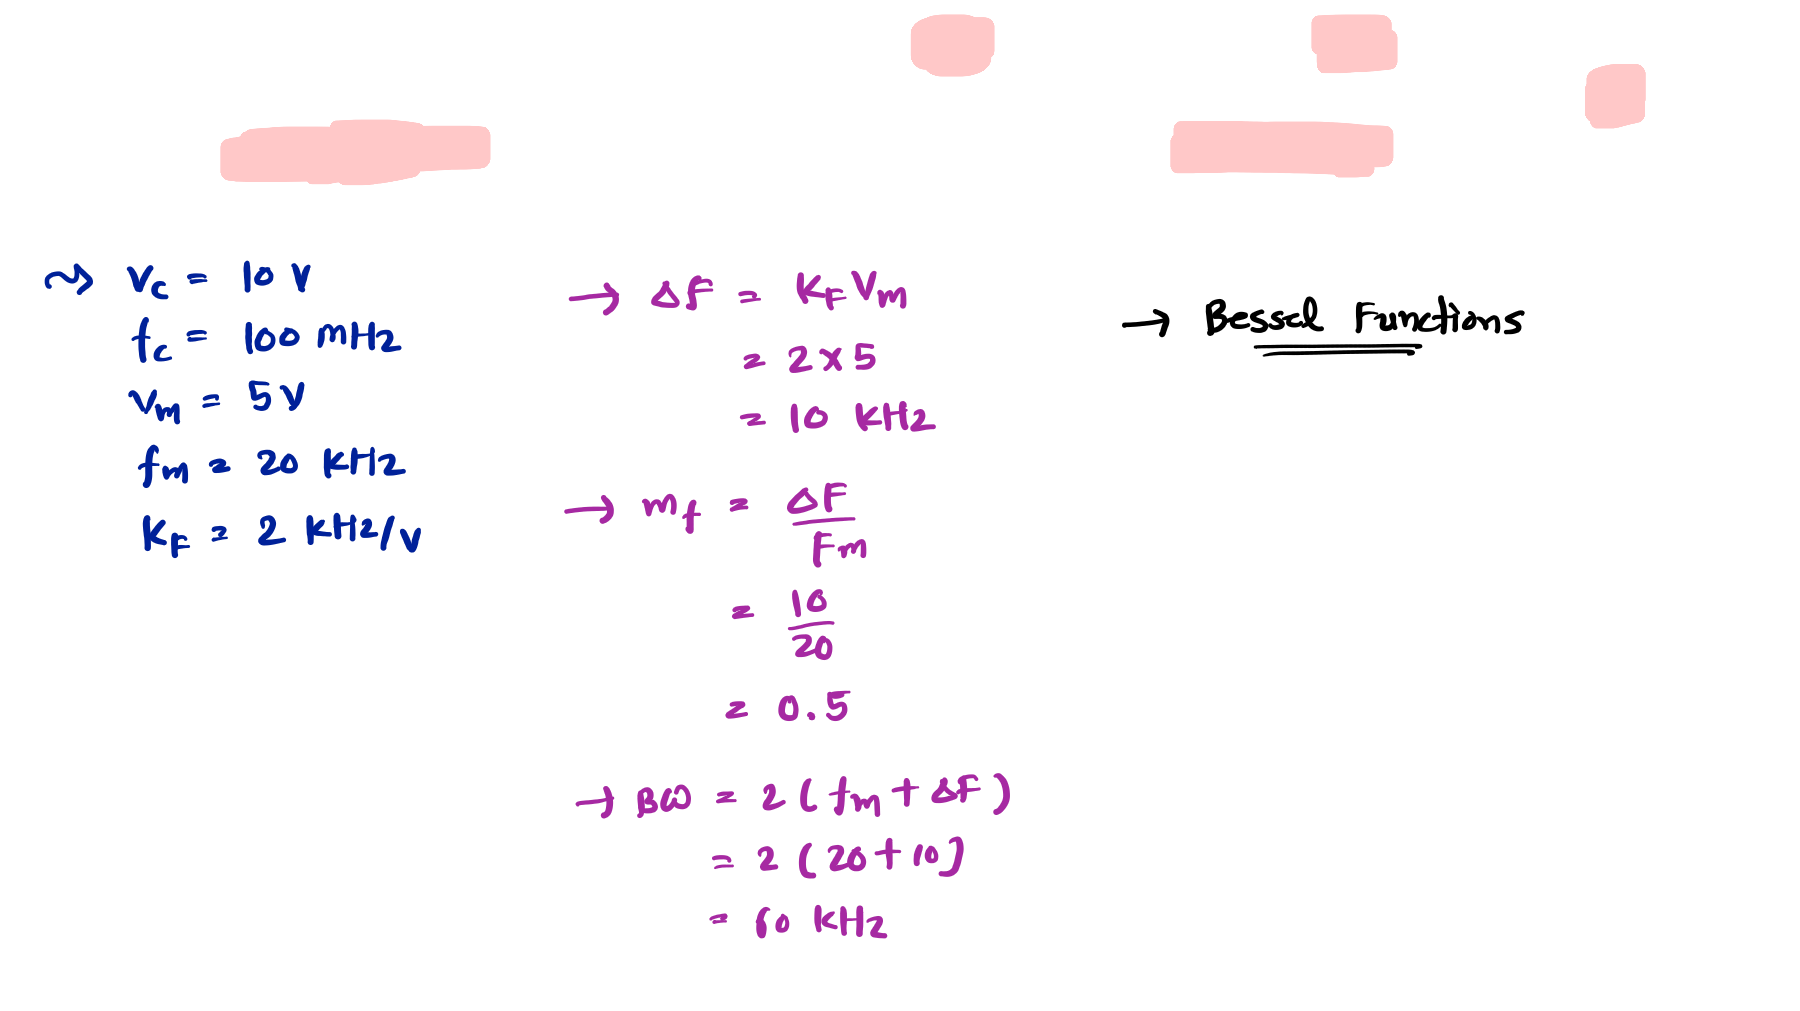 Vc = 10 V
fc = 100 mHz
Vm = 5V
fm = 20 KHz
KF = 2 KHz/V
→ ΔF = KF Vm
= 2 x 5
= 10 KHz
→ mf = ΔF / Fm
= 10 / 20
= 0.5
→ BW = 2 ( fm + ΔF )
= 2 ( 20 + 10 )
= 60 KHz
→ Bessel Functions